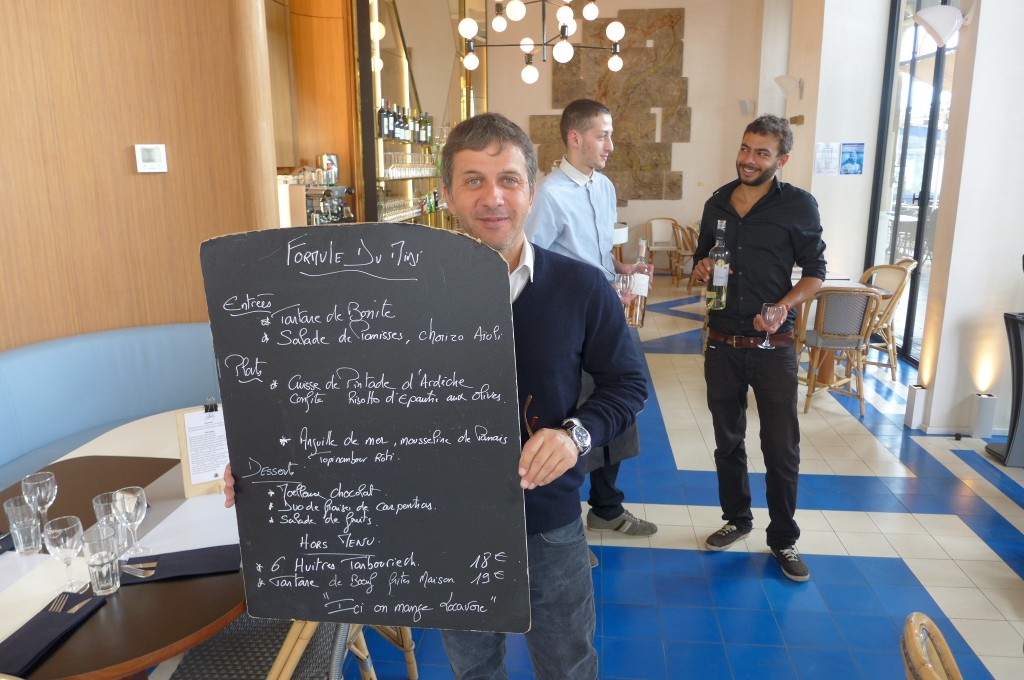 Formule Du Midi
Entrées
* Tartare de Bonite
* Salade de Panisses, chorizo Aïoli
Plats
* Cuisse de Pintade d'Ardèche
Confite Risotto d'Epautre aux olives.
* Anguille de mer, mousseline de Panais
Topinambour Roti.
Desserts
* Moelleux chocolat
* Duo de fraise de carpentras.
* Salade de fruits.
Hors Menu
* 6 Huitres Tarbouriech. 18€
* Tartare de Bœuf frites Maison 19€
"Ici on mange Locavore"